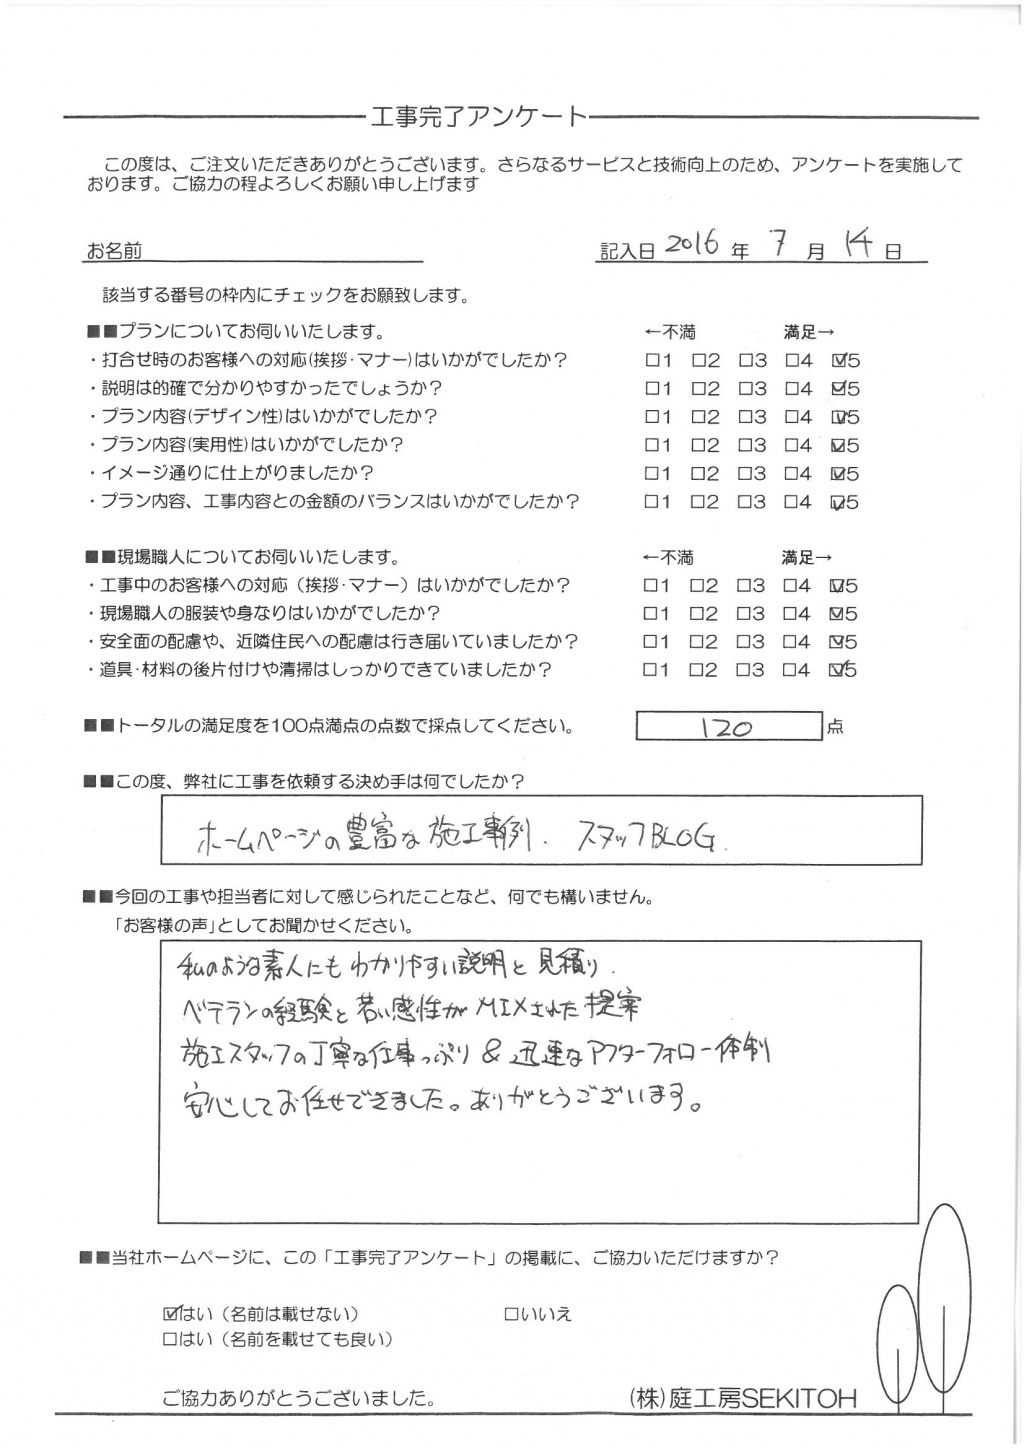 工事完了アンケート
この度は、ご注文いただきありがとうございます。さらなるサービスと技術向上のため、アンケートを実施して
おります。ご協力の程よろしくお願い申し上げます
お名前 記入日 2016 年 7 月 14 日
該当する番号の枠内にチェックをお願致します。
■■プランについてお伺いいたします。 ←不満 満足→
・打合せ時のお客様への対応(挨拶・マナー)はいかがでしたか？ □1 □2 □3 □4 ☑5
・説明は的確で分かりやすかったでしょうか？ □1 □2 □3 □4 ☑5
・プラン内容(デザイン性)はいかがでしたか？ □1 □2 □3 □4 ☑5
・プラン内容(実用性)はいかがでしたか？ □1 □2 □3 □4 ☑5
・イメージ通りに仕上がりましたか？ □1 □2 □3 □4 ☑5
・プラン内容、工事内容との金額のバランスはいかがでしたか？ □1 □2 □3 □4 ☑5
■■現場職人についてお伺いいたします。 ←不満 満足→
・工事中のお客様への対応（挨拶・マナー）はいかがでしたか？ □1 □2 □3 □4 ☑5
・現場職人の服装や身なりはいかがでしたか？ □1 □2 □3 □4 ☑5
・安全面の配慮や、近隣住民への配慮は行き届いていましたか？ □1 □2 □3 □4 ☑5
・道具・材料の後片付けや清掃はしっかりできていましたか？ □1 □2 □3 □4 ☑5
■■トータルの満足度を100点満点の点数で採点してください。 120 点
■■この度、弊社に工事を依頼する決め手は何でしたか？
ホームページの豊富な施工事例. スタッフBLOG.
■■今回の工事や担当者に対して感じられたことなど、何でも構いません。
「お客様の声」としてお聞かせください。
私のような素人にもわかりやすい説明と見積り.
ベテランの経験と若い感性がMIXされた提案
施工スタッフの丁寧な仕事っぷり & 迅速なアフターフォロー体制
安心してお任せできました。ありがとうございます。
■■当社ホームページに、この「工事完了アンケート」の掲載に、ご協力いただけますか？
☑はい（名前は載せない） □いいえ
□はい（名前を載せても良い）
ご協力ありがとうございました。 (株)庭工房SEKITOH